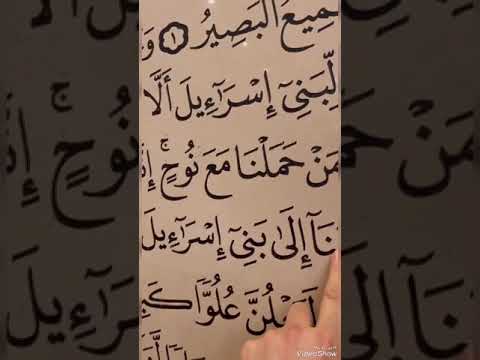 ـمِيعُ ٱلْبَصِيرُ ١ وَ
لِّبَنِىٓ إِسْرَٰٓءِيلَ أَلَّا
مَنْ حَمَلْنَا مَعَ نُوحٍۚ إِنَّـ
ـنَآ إِلَىٰ بَنِىٓ إِسْرَٰٓءِيلَ
عُلُوًّا كَبِـ
VideoShow